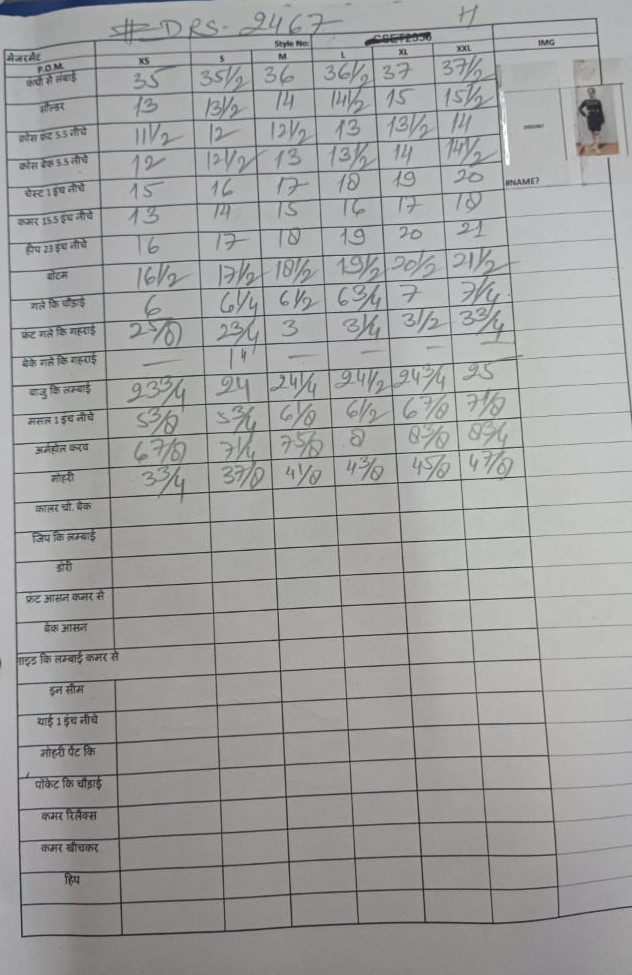 # DRS-2467 H
मेजरमेंट Style No: IMG
P.O.M. XS S M L XL XXL
कंधी से लंबाई 35 35 1/2 36 36 1/2 37 37 1/2
सोल्डर 13 13 1/2 14 14 1/2 15 15 1/2
क्रोस फ्रंट 5.5 नीचे 11 1/2 12 12 1/2 13 13 1/2 14
क्रोस बेक 5.5 नीचे 12 12 1/2 13 13 1/2 14 14 1/2
चेस्ट 1 इंच नीचे 15 16 17 18 19 20 #NAME?
कमर 15.5 इंच नीचे 13 14 15 16 17 18
हीप 23 इंच नीचे 16 17 18 19 20 21
बोटम 16 1/2 17 1/2 18 1/2 19 1/2 20 1/2 21 1/2
गले कि चौड़ाई 6 6 1/4 6 1/2 6 3/4 7 7 1/4
फ्रंट गले कि गहराई 2 5/8 2 3/4 3 3 1/4 3 1/2 3 3/4
बेके गले कि गहराई — 1" — — — —
बाजु कि लम्बाई 23 3/4 24 24 1/4 24 1/2 24 3/4 25
मसल 1 इंच नीचे 5 3/8 5 3/4 6 1/8 6 1/2 6 7/8 7 1/8
अर्महोल करव 6 7/8 7 1/4 7 5/8 8 8 3/8 8 3/4
मोहरी 3 3/4 3 7/8 4 1/8 4 3/8 4 5/8 4 7/8
कालर चो. बेक
जिप कि लम्बाई
डोरी
फ्रंट आसन कमर से
बेक आसन
साइड कि लम्बाई कमर से
इन सीम
थाई 1 इंच नीचे
मोहरी पेंट कि
पॉकेट कि चौड़ाई
कमर रिलैक्स
कमर खीचकर
हिप